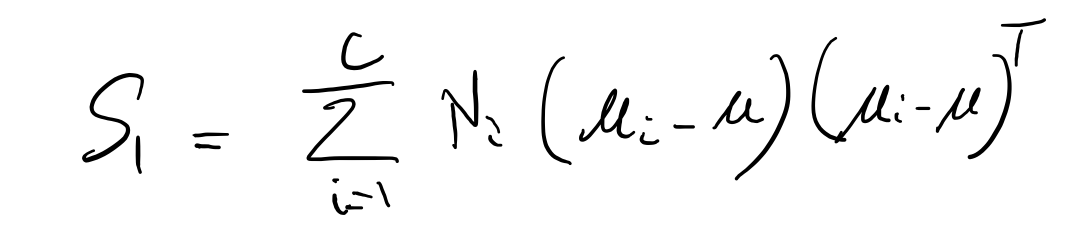 S₁ = \sum_{i=1}^{C} Nᵢ (μᵢ - μ)(μᵢ - μ)ᵀ